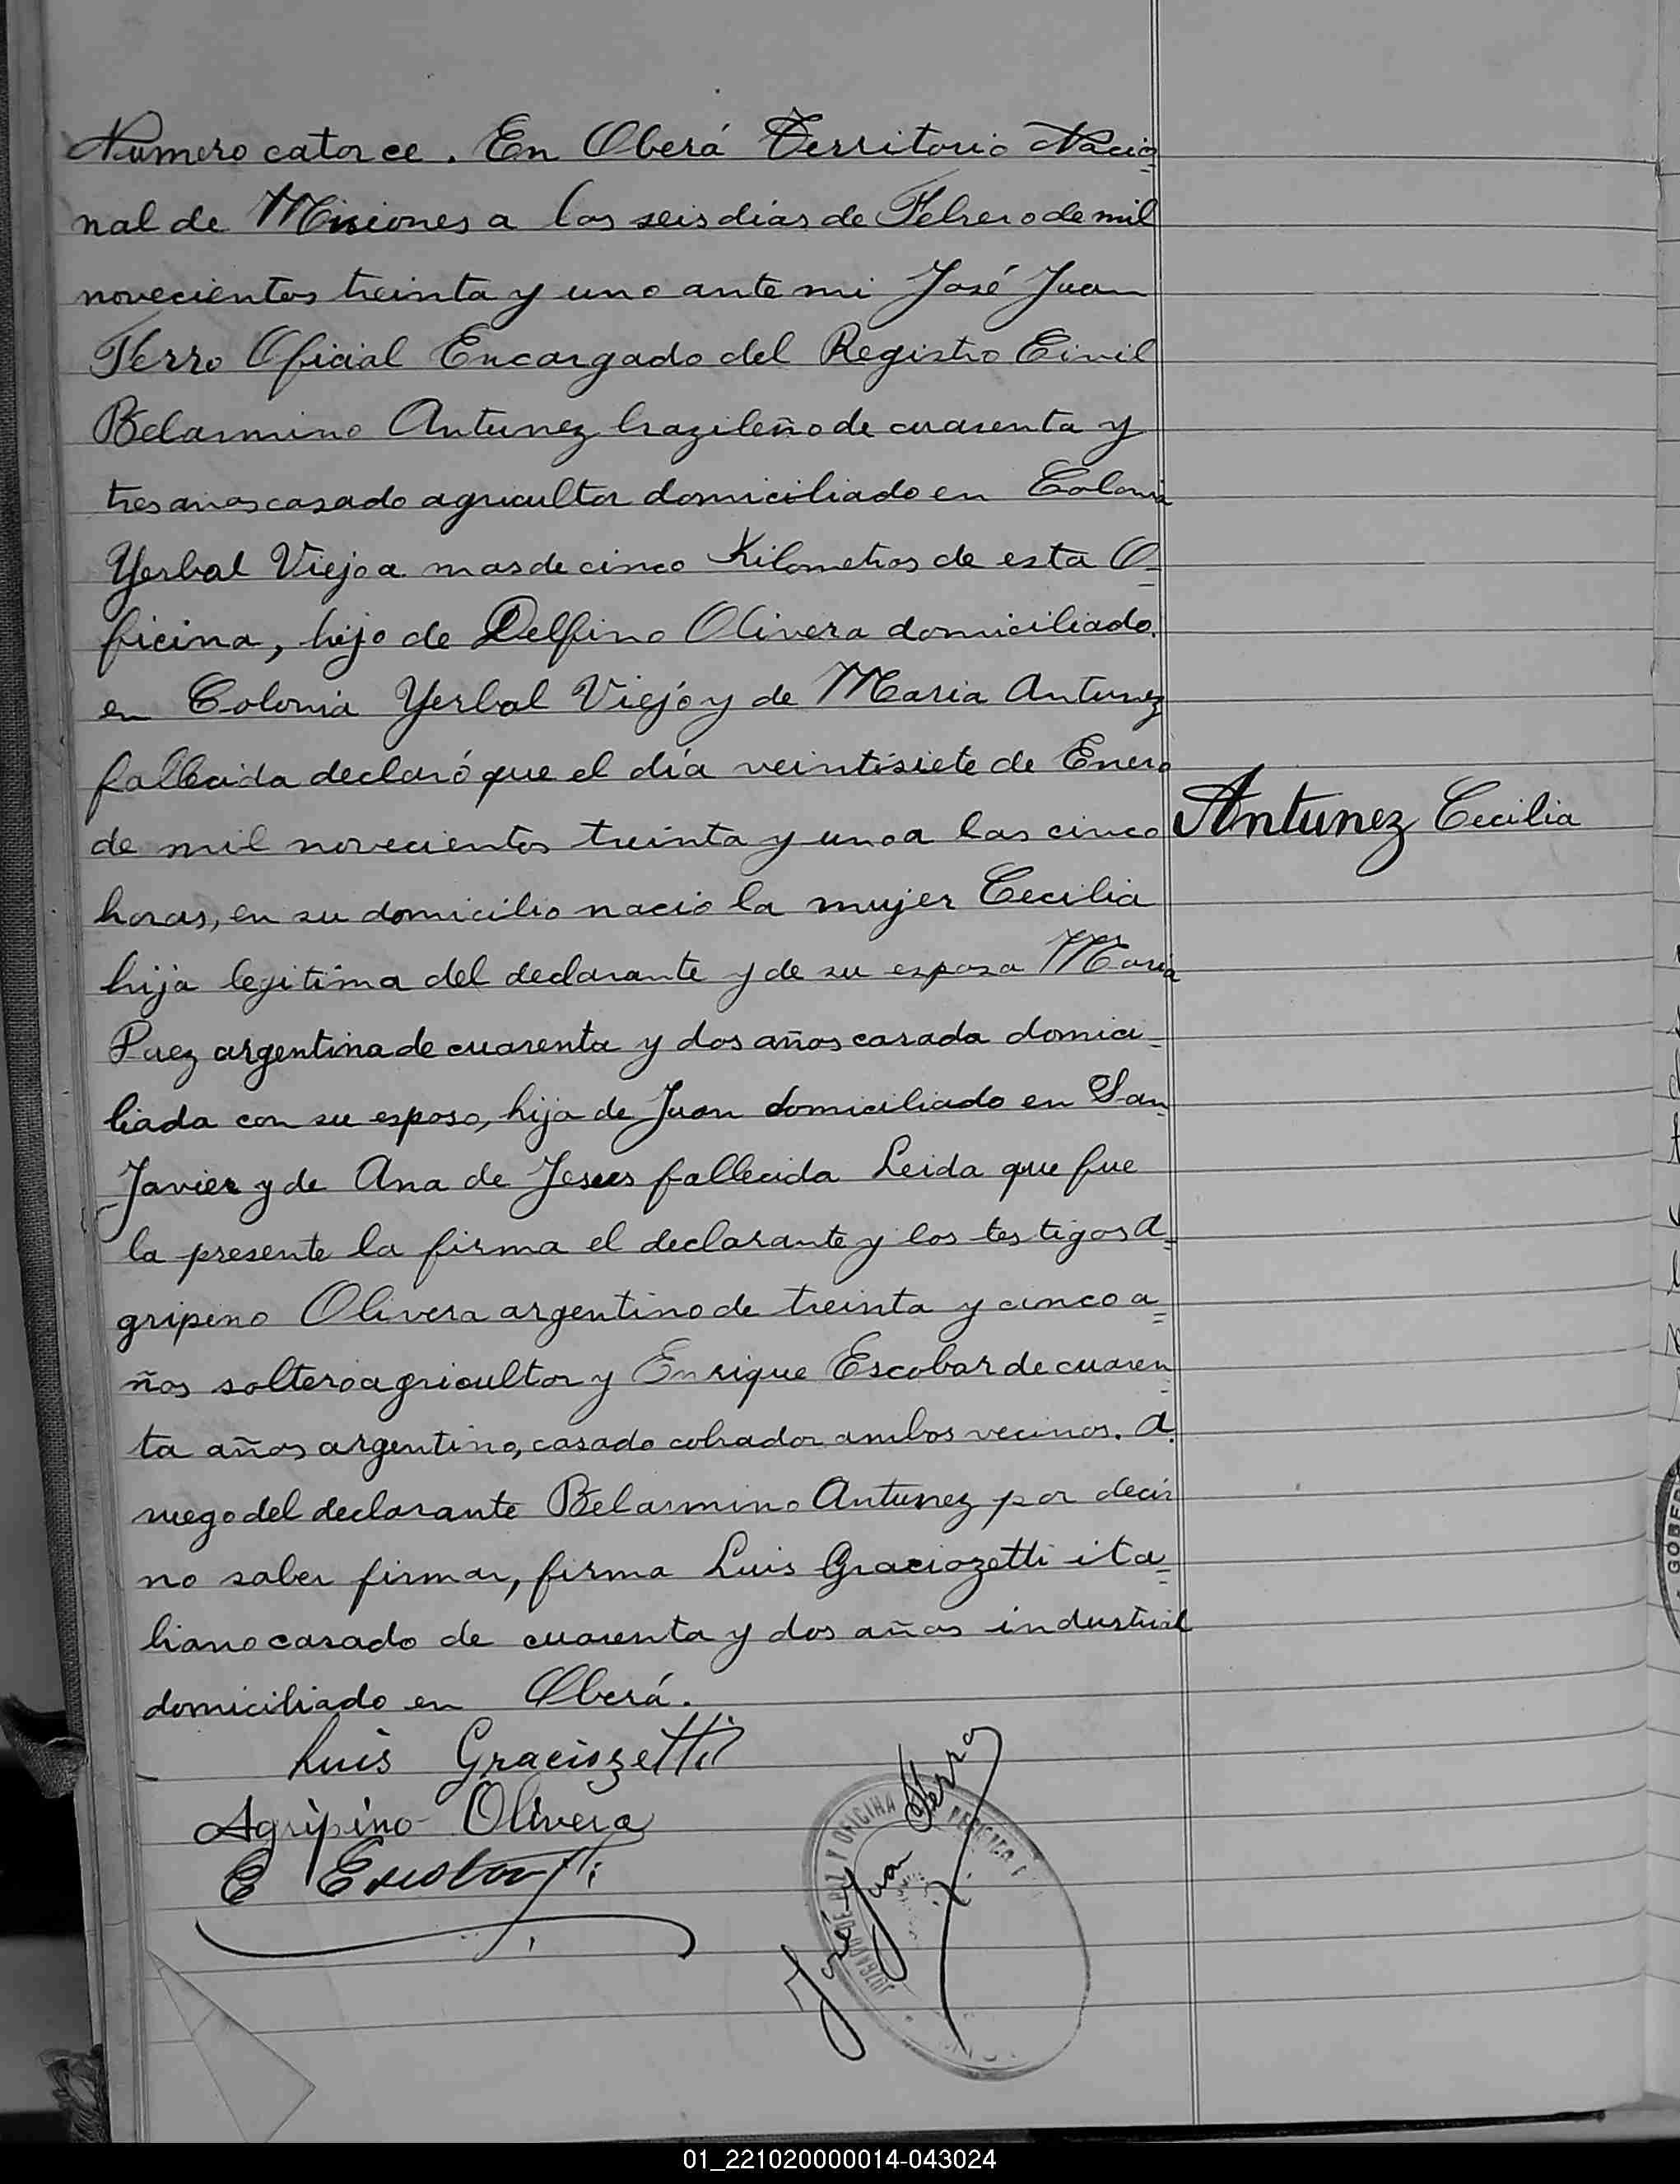 Numero catorce. En Oberá Territorio Nacio=
nal de Misiones a los seis días de Febrero de mil
novecientos treinta y uno ante mi José Juan
Ferro Oficial Encargado del Registro Civil
Belarmino Antunez brazileño de cuarenta y
tres años casado agricultor domiciliado en Colonia
Yerbal Viejo a mas de cinco Kilometros de esta O=
ficina, hijo de Delfino Olivera domiciliado.
en Colonia Yerbal Viejo y de Maria Antunez
fallecida declaró que el día veintisiete de Enero
de mil novecientos treinta y uno a las cinco
Antunez Cecilia
horas, en su domicilio nacio la mujer Cecilia
hija legitima del declarante y de su esposa Maria
Paez argentina de cuarenta y dos años casada domici=
liada con su esposo, hija de Juan domiciliado en San
Javier y de Ana de Jesus fallecida Leida que fue
la presente la firma el declarante y los testigos A=
gripino Olivera argentino de treinta y cinco a=
ños soltero agricultor y Enrique Escobar de cuaren=
ta años argentino, casado cobrador ambos vecinos. A
ruego del declarante Belarmino Antunez por decir
no saber firmar, firma Luis Graciozetti ita=
liano casado de cuarenta y dos años industrial
domiciliado en Oberá.
Luis Graciozetti
Agripino Olivera
E Escobar
José Juan Ferro
JUZGADO DE PAZ Y OFICINA REGISTRO
GOBER
01_221020000014-043024